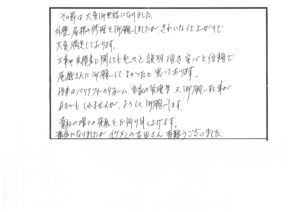 その節は大変お世話になりました。
外壁、屋根の修理を御願いしましたが きれいな仕上がりで
大変満足しております。
工事中 見積等に関しても色々と説明頂き 安心と信頼で
尾道さんに御願いして よかったと思っております。
将来はバリアフリーのリフォーム、 又 御願いする事が
あるかもしれませんが、よろしく御願いします。
貴社の増々の発展をお祈り申し上げます。
最後になりましたが イケメンの吉田さん 有難うございました。